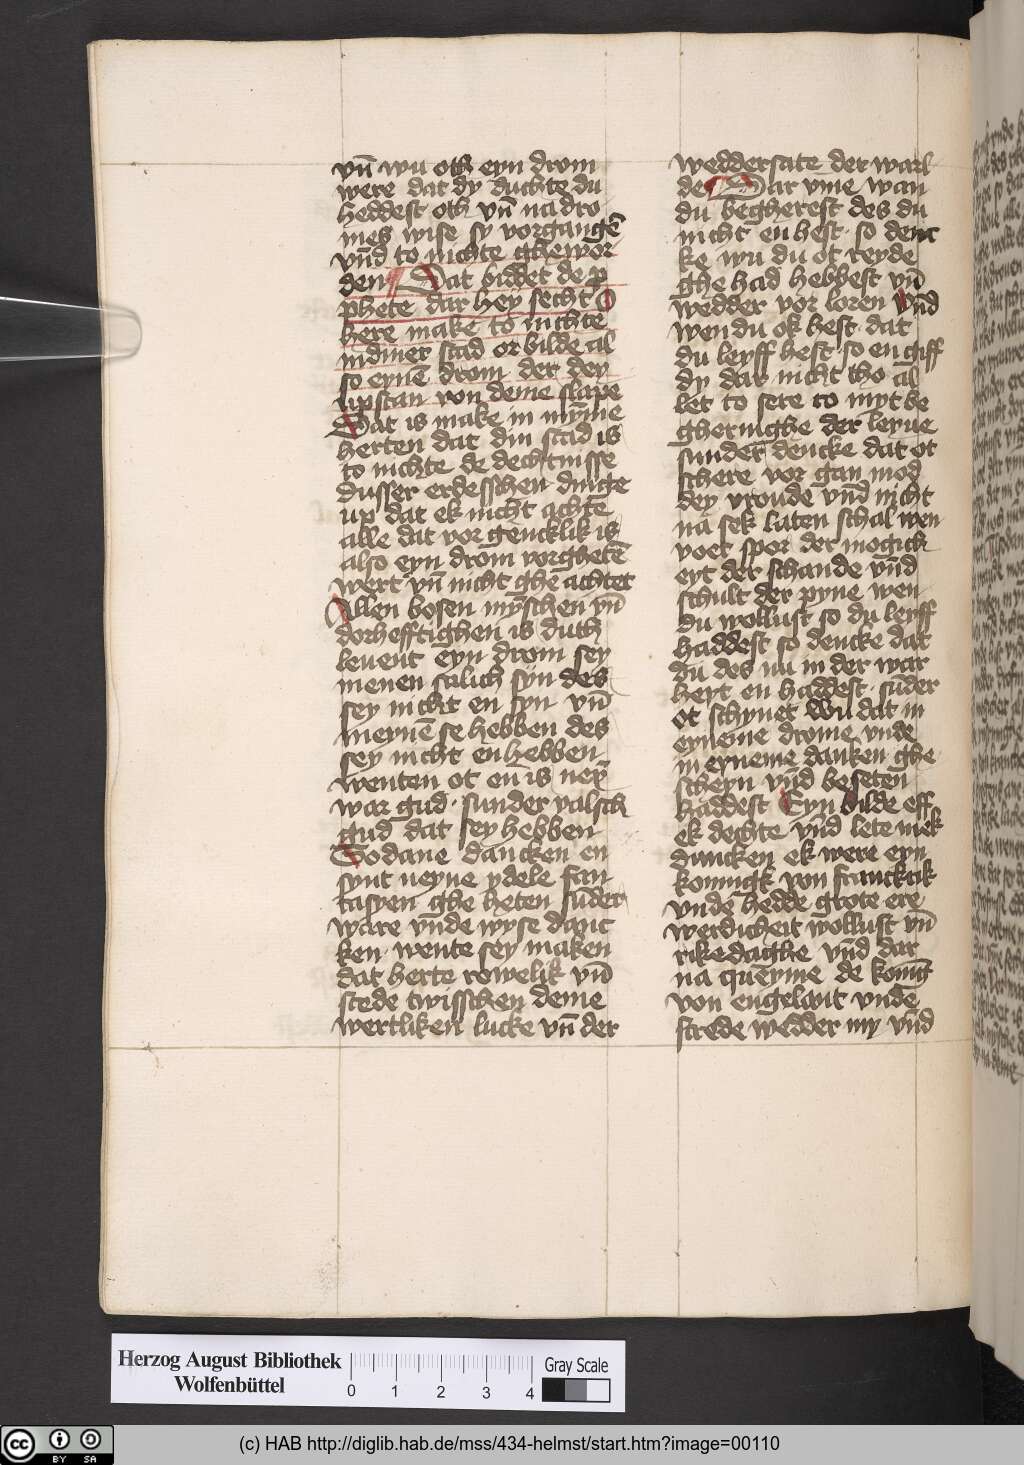 vn̄ wu oth eyn drom
were dat dy duchte du
heddest oth vn̄ na dro
mes wise sy vorgangē
vn̄d to nichte ghewor
den Dat biddet de p
phete dar hey secht O
here make to nichte
in diner stad or bilde al
so eynē drom der dey
upstan von deme slape
Dat is make in myme
herten dat din stad is
to nichte de dechtnisse
dusser erdesschen dincte
up dat ek nicht achte
alle dat vorgencklik is
also eyn drom vorghetē
wert vn̄ nicht ghe achtet
Allen bosen mȳschen vn̄
dorhefftighen is duth
leuent eyn drom sey
menen salich syn des
sey nicht en syn vn̄
meynē se hebben des
sey nicht en hebben
wenten ot en is neyn
war gud sunder valsch
gud dat sey hebben
Sodane dancken en
synt neyne ydele fan
tasyen ghe heten sūder
ware vn̄de wyse danc
ken wente sey maken
dat herte rowelik vn̄
stede twisschen deme
wertliken lucke vn̄ der
weddersate der warl
de Dar vme wan
du begherest des du
nicht en hest so denc
ke wu du ot reyde
ghe had hebbest vn̄
wedder vor loren vn̄d
wen du ok hest dat
du leyff hest so en giff
dy dar nicht tho al
let to sere to myt be
gheringhe der leyue
sunder dencke dat ot
schere vor gan mod
dey vroude vn̄d nicht
na sek laten schal wen
voet spor der mogick
eyt der schande vn̄d
schult der pyne wen
du wollust so du leyff
haddest so dencke dat
du des nu in der war
heyt en haddest sūder
ot schynet wu dat in
eyneme drome vnde
in eyneme danken ghe
scheyn vn̄d beseten
haddest Eyn bilde eff
ek dechte vn̄d lete mek
duncken ek were eyn
konnigk von franckrik
vnde hedde grote ere
werdicheit wollust vn̄
rikedaghe vn̄d dar
na queyme de konig
von engelant vnde
strede wedder my vn̄d
Herzog August Bibliothek
Wolfenbüttel
0 1 2 3 4
Gray Scale
cc BY SA
(c) HAB http://diglib.hab.de/mss/434-helmst/start.htm?image=00110